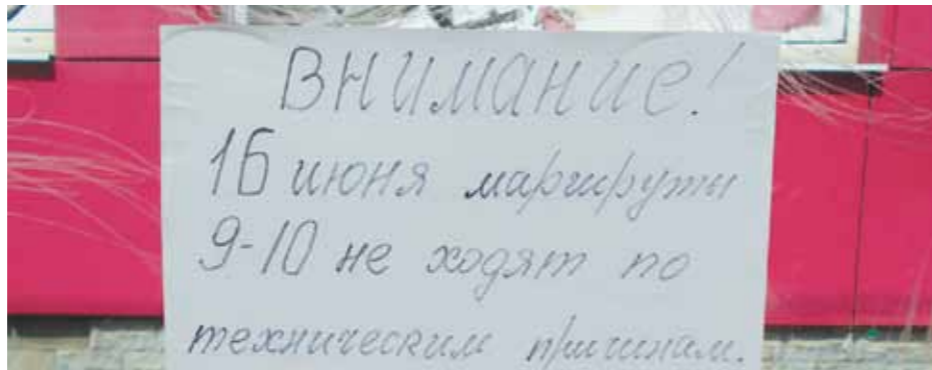 Внимание!
16 июня маршруты
9-10 не ходят по
техническим причинам.